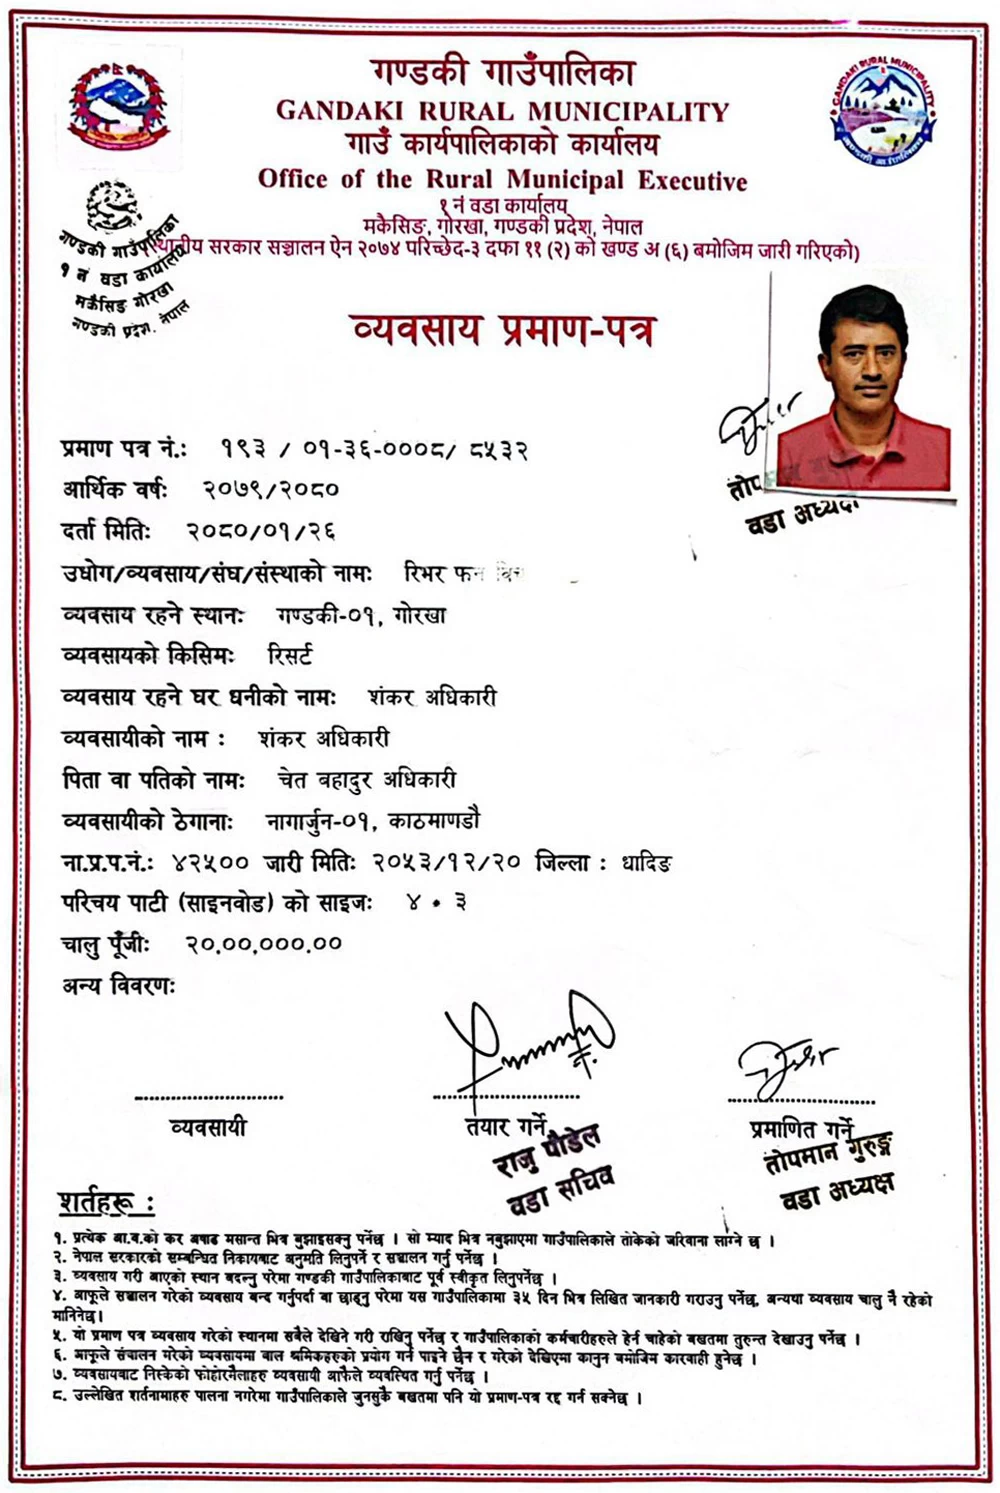 गण्डकी गाउँपालिका
GANDAKI RURAL MUNICIPALITY
गाउँ कार्यपालिकाको कार्यालय
Office of the Rural Municipal Executive
१ नं वडा कार्यालय
मकैसिङ, गोरखा, गण्डकी प्रदेश, नेपाल
स्थानीय सरकार सञ्चालन ऐन २०७४ परिच्छेद-३ दफा ११ (२) को खण्ड अ (६) बमोजिम जारी गरिएको)
GANDAKI RURAL MUNICIPALITY
गण्डकी गाउँपालिका
१ नं वडा कार्यालय
मकैसिङ गोरखा
गण्डकी प्रदेश, नेपाल
व्यवसाय प्रमाण-पत्र
वडा अध्यक्ष
प्रमाण पत्र नं.: १९३ / ०१-३६-०००८/ ८५३२
आर्थिक वर्षः २०७९/२०८०
दर्ता मितिः २०८०/०१/२६
उधोग/व्यवसाय/संघ/संस्थाको नामः रिभर फन
व्यवसाय रहने स्थानः गण्डकी-०१, गोरखा
व्यवसायको किसिमः रिसर्ट
व्यवसाय रहने घर धनीको नामः शंकर अधिकारी
व्यवसायीको नाम : शंकर अधिकारी
पिता वा पतिको नामः चेत बहादुर अधिकारी
व्यवसायीको ठेगानाः नागार्जुन-०१, काठमाणडौ
ना.प्र.प.नं.: ४२५०० जारी मितिः २०५३/१२/२० जिल्ला : धादिङ
परिचय पाटी (साइनवोड) को साइजः ४ * ३
चालु पूँजीः २०,००,०००.००
अन्य विवरणः
व्यवसायी
तयार गर्ने
राजु पौडेल
वडा सचिव
प्रमाणित गर्ने
तोपमान गुरुङ्ग
वडा अध्यक्ष
शर्तहरू :
१. प्रत्येक आ.व.को कर अषाढ मसान्त भित्र बुझाइसक्नु पर्नेछ । सो म्याद भित्र नबुझाएमा गाउँपालिकाले तोकेको जरिवाना लाग्ने छ ।
२. नेपाल सरकारको सम्बन्धित निकायबाट अनुमति लिनुपर्ने र सञ्चालन गर्नु पर्नेछ ।
३. व्यवसाय गरी आएको स्थान बदल्नु परेमा गण्डकी गाउँपालिकाबाट पूर्व स्वीकृत लिनुपर्नेछ ।
४. आफूले सञ्चालन गरेको व्यवसाय बन्द गर्नुपर्दा वा छाड्नु परेमा यस गाउँपालिकामा ३५ दिन भित्र लिखित जानकारी गराउनु पर्नेछ, अन्यथा व्यवसाय चालु नै रहेको
मानिनेछ।
५. यो प्रमाण पत्र व्यवसाय गरेको स्थानमा सबैले देखिने गरी राखिनु पर्नेछ र गाउँपालिकाका कर्मचारीहरुले हेर्न चाहेको बखतमा तुरुन्त देखाउनु पर्नेछ ।
६. आफूले संचालन गरेको व्यवसायमा बाल श्रमिकहरुको प्रयोग गर्न पाइने छैन र गरेको देखिएमा कानुन बमोजिम कारवाही हुनेछ ।
७. व्यवसायबाट निस्केको फोहोरमैलाहरु व्यवसायी आफैले व्यवस्थित गर्नु पर्नेछ ।
८. उल्लेखित शर्तनामाहरु पालना नगरेमा गाउँपालिकाले जुनसुकै बखतमा पनि यो प्रमाण-पत्र रद्द गर्न सक्नेछ ।